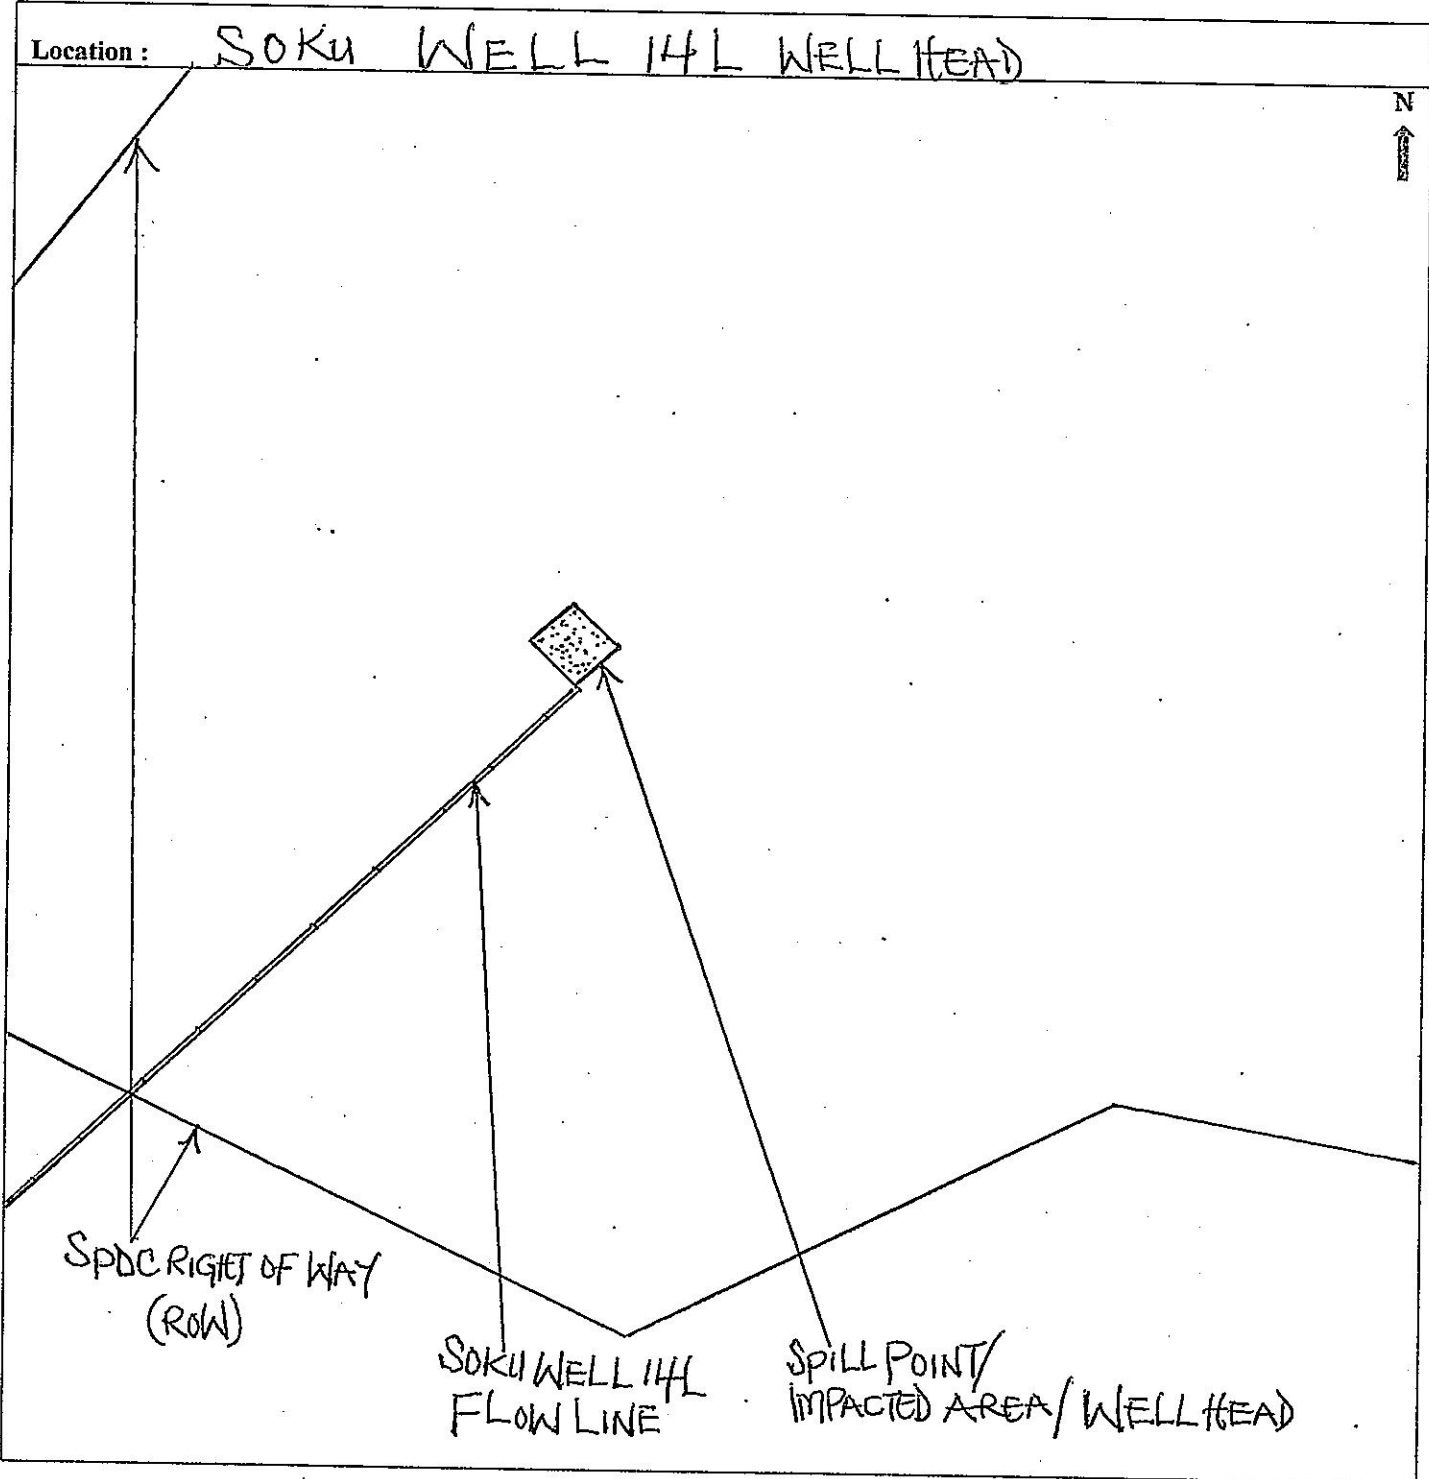 Location : SOKU WELL 14L WELL HEAD
N
SPDC RIGHT OF WAY
(ROW)
SOKU WELL 14L
FLOW LINE
SPILL POINT/
IMPACTED AREA/WELL HEAD